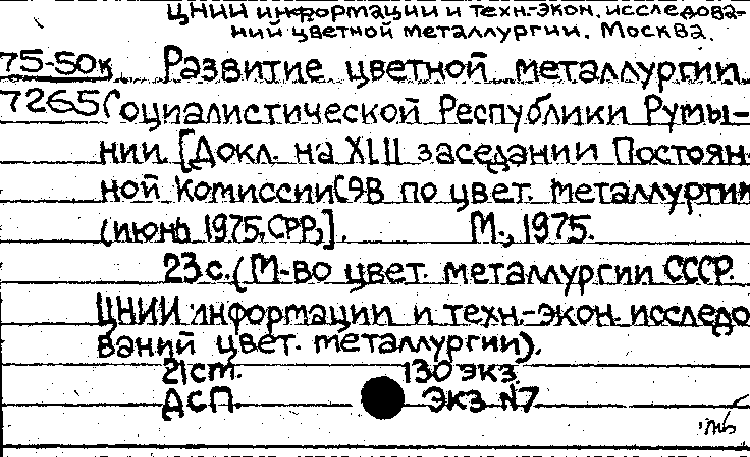 ЦНИИ информации и техн.-экон. исследова-
нии цветной металлургии. Москва.
75-50к Развитие цветной металлургии
7265 Социалистической Республики Румы-
нии. [Докл. на XLII заседании Постоян-
ной Комиссии СЭВ по цвет. металлургии
(июнь 1975, СРР)]. М., 1975.
23 с. (М-во цвет. металлургии СССР.
ЦНИИ информации и техн.-экон. исследо
ваний цвет. металлургии).
21 cm. 130 экз.
ДСП. Экз. №7